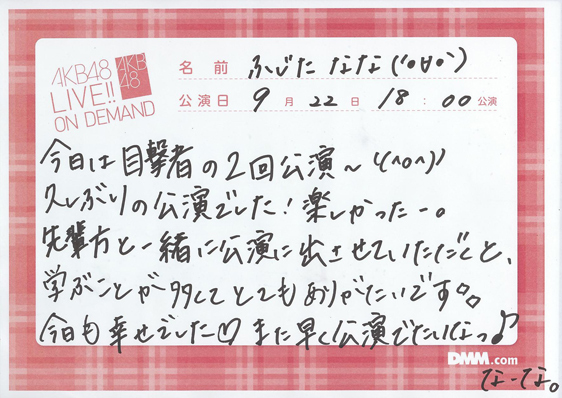 AKB48
LIVE!!
ON DEMAND
AKB
48
名前 ふじた なな(°∀°)
公演日 9月22日 18:00公演
今日は目撃者の2回公演〜\(^o^)/
久しぶりの公演でした!楽しかったー。
先輩方と一緒に公演に出させていただくと、
学ぶことが多くてとてもありがたいです。。
今日も幸せでした♡ また早く公演でたいなっ♪
DMM.com
なーな。